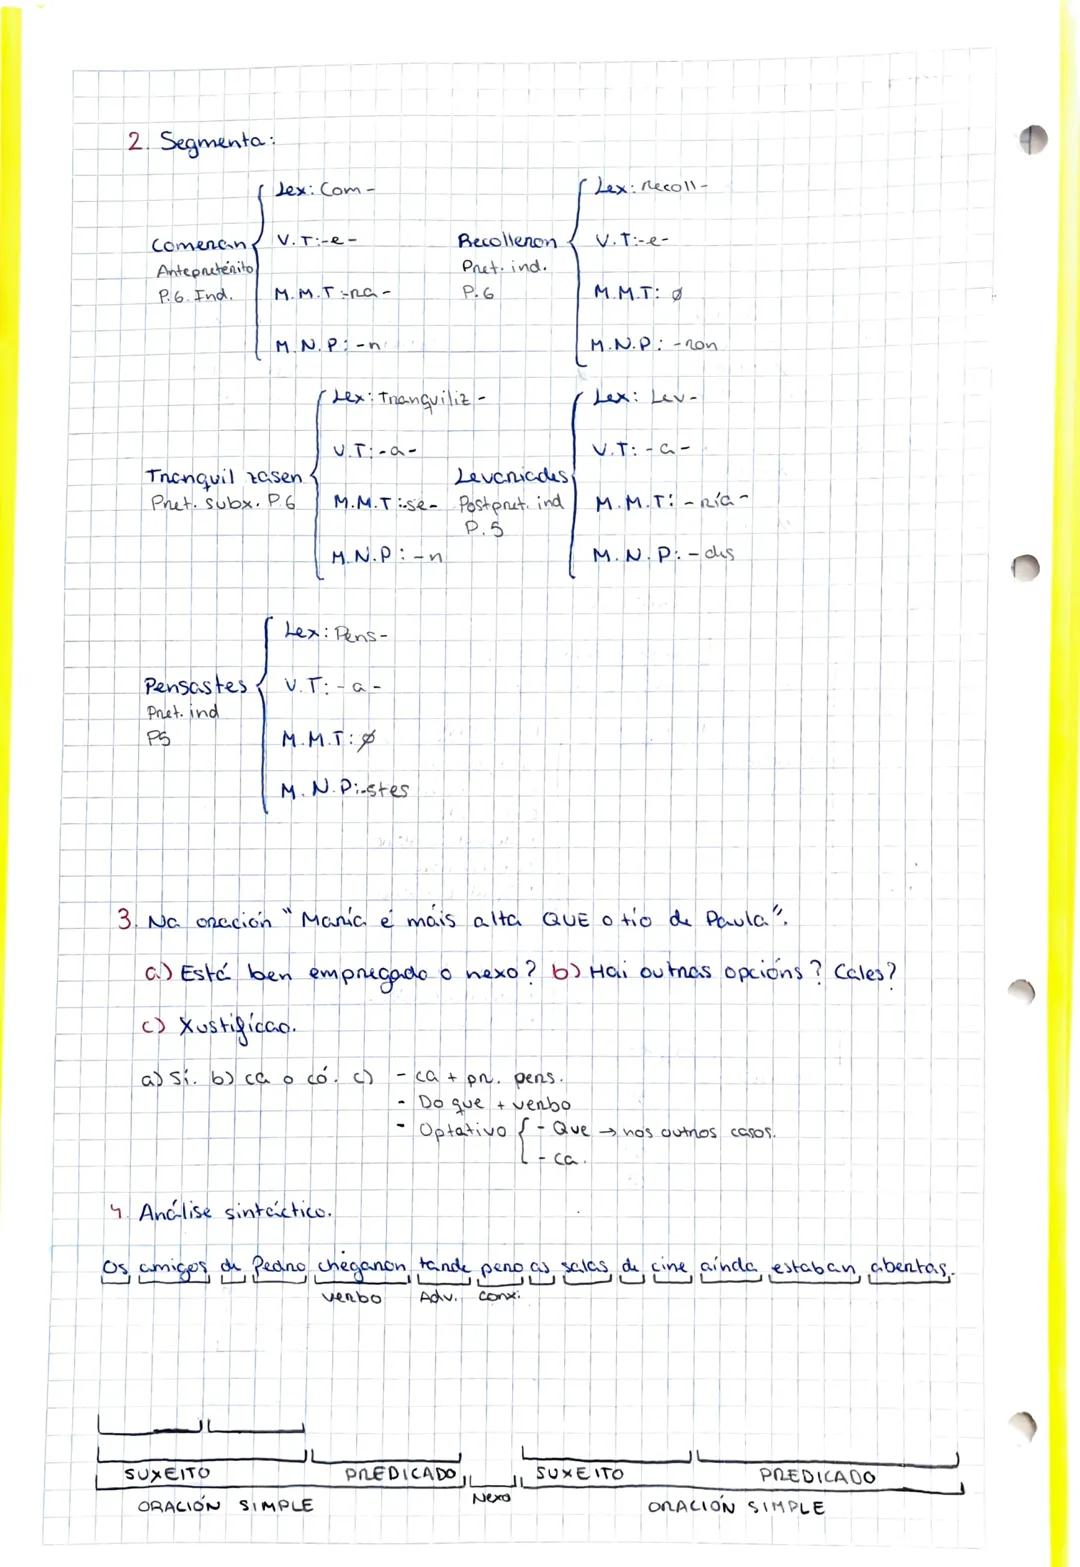 2. Segmenta:
Comeran
Antepretérito
P.6. Ind.
Lex: Com-
V.T:-e-
M.M.T:-ra-
M.N.P: -n
Recolleron
Pret. ind.
P.6
Lex: recoll-
V.T:-e-
M.M.T: ø
M.N.P: -ron
Tranquil zasen
Pret. subx. P6
Lex: Tranquiliz-
V.T:-a-
M.M.T:-se-
M.N.P: -n
Levariades
Postpret. ind
P.5
Lex: Lev-
V.T: -a-
M.M.T: -ría-
M.N.P: -des
Pensastes
Pret. ind
P5
Lex: Pens-
V.T: -a-
M.M.T: ø
M.N.P:-stes
3. Na oración "María é máis alta QUE o tío de Paula".
a) Está ben empregado o nexo? b) Hai outras opcións? Cales?
c) Xustifícao.
a) Sí. b) ca o có. c) - ca + pr. pers.
- Do que + verbo
- Optativo { - Que → nos outros casos.
- ca.
4. Análise sintáctico.
Os amigos de Pedro chegaron tarde pero as salas de cine aínda estaban abertas.
verbo Adv. conx.
SUXEITO PREDICADO SUXEITO PREDICADO
ORACIÓN SIMPLE Nexo ORACIÓN SIMPLE